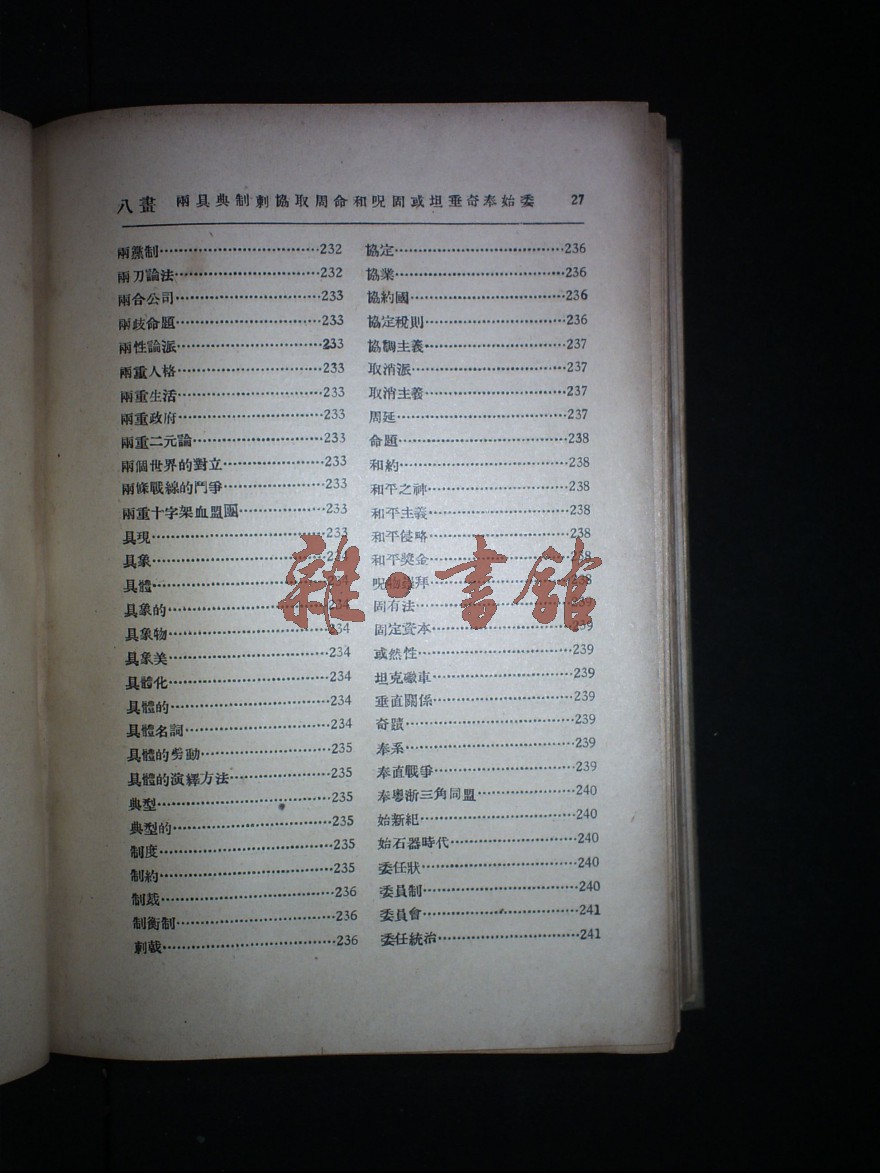 八畫 兩具典制刺協取周命和呪固或坦垂奇奉始委 27
兩黨制……232
兩刀論法……232
兩合公司……233
兩歧命題……233
兩性論派……233
兩重人格……233
兩重生活……233
兩重政府……233
兩重二元論……233
兩個世界的對立……233
兩條戰線的鬥爭……233
兩重十字架血盟團……233
具現……233
具象……234
具體……234
具象的……234
具象物……234
具象美……234
具體化……234
具體的……234
具體名詞……234
具體的勞動……235
具體的演繹方法……235
典型……235
典型的……235
制度……235
制約……235
制裁……236
制衡制……236
刺戟……236
協定……236
協業……236
協約國……236
協定稅則……236
協調主義……237
取消派……237
取消主義……237
周延……237
命題……238
和約……238
和平之神……238
和平主義……238
和平侵略……238
和平獎金……238
呪物崇拜……238
固有法……239
固定資本……239
或然性……239
坦克礮車……239
垂直關係……239
奇蹟……239
奉系……239
奉直戰爭……239
奉粵浙三角同盟……240
始新紀……240
始石器時代……240
委任狀……240
委員制……240
委員會……241
委任統治……241
雜·書館